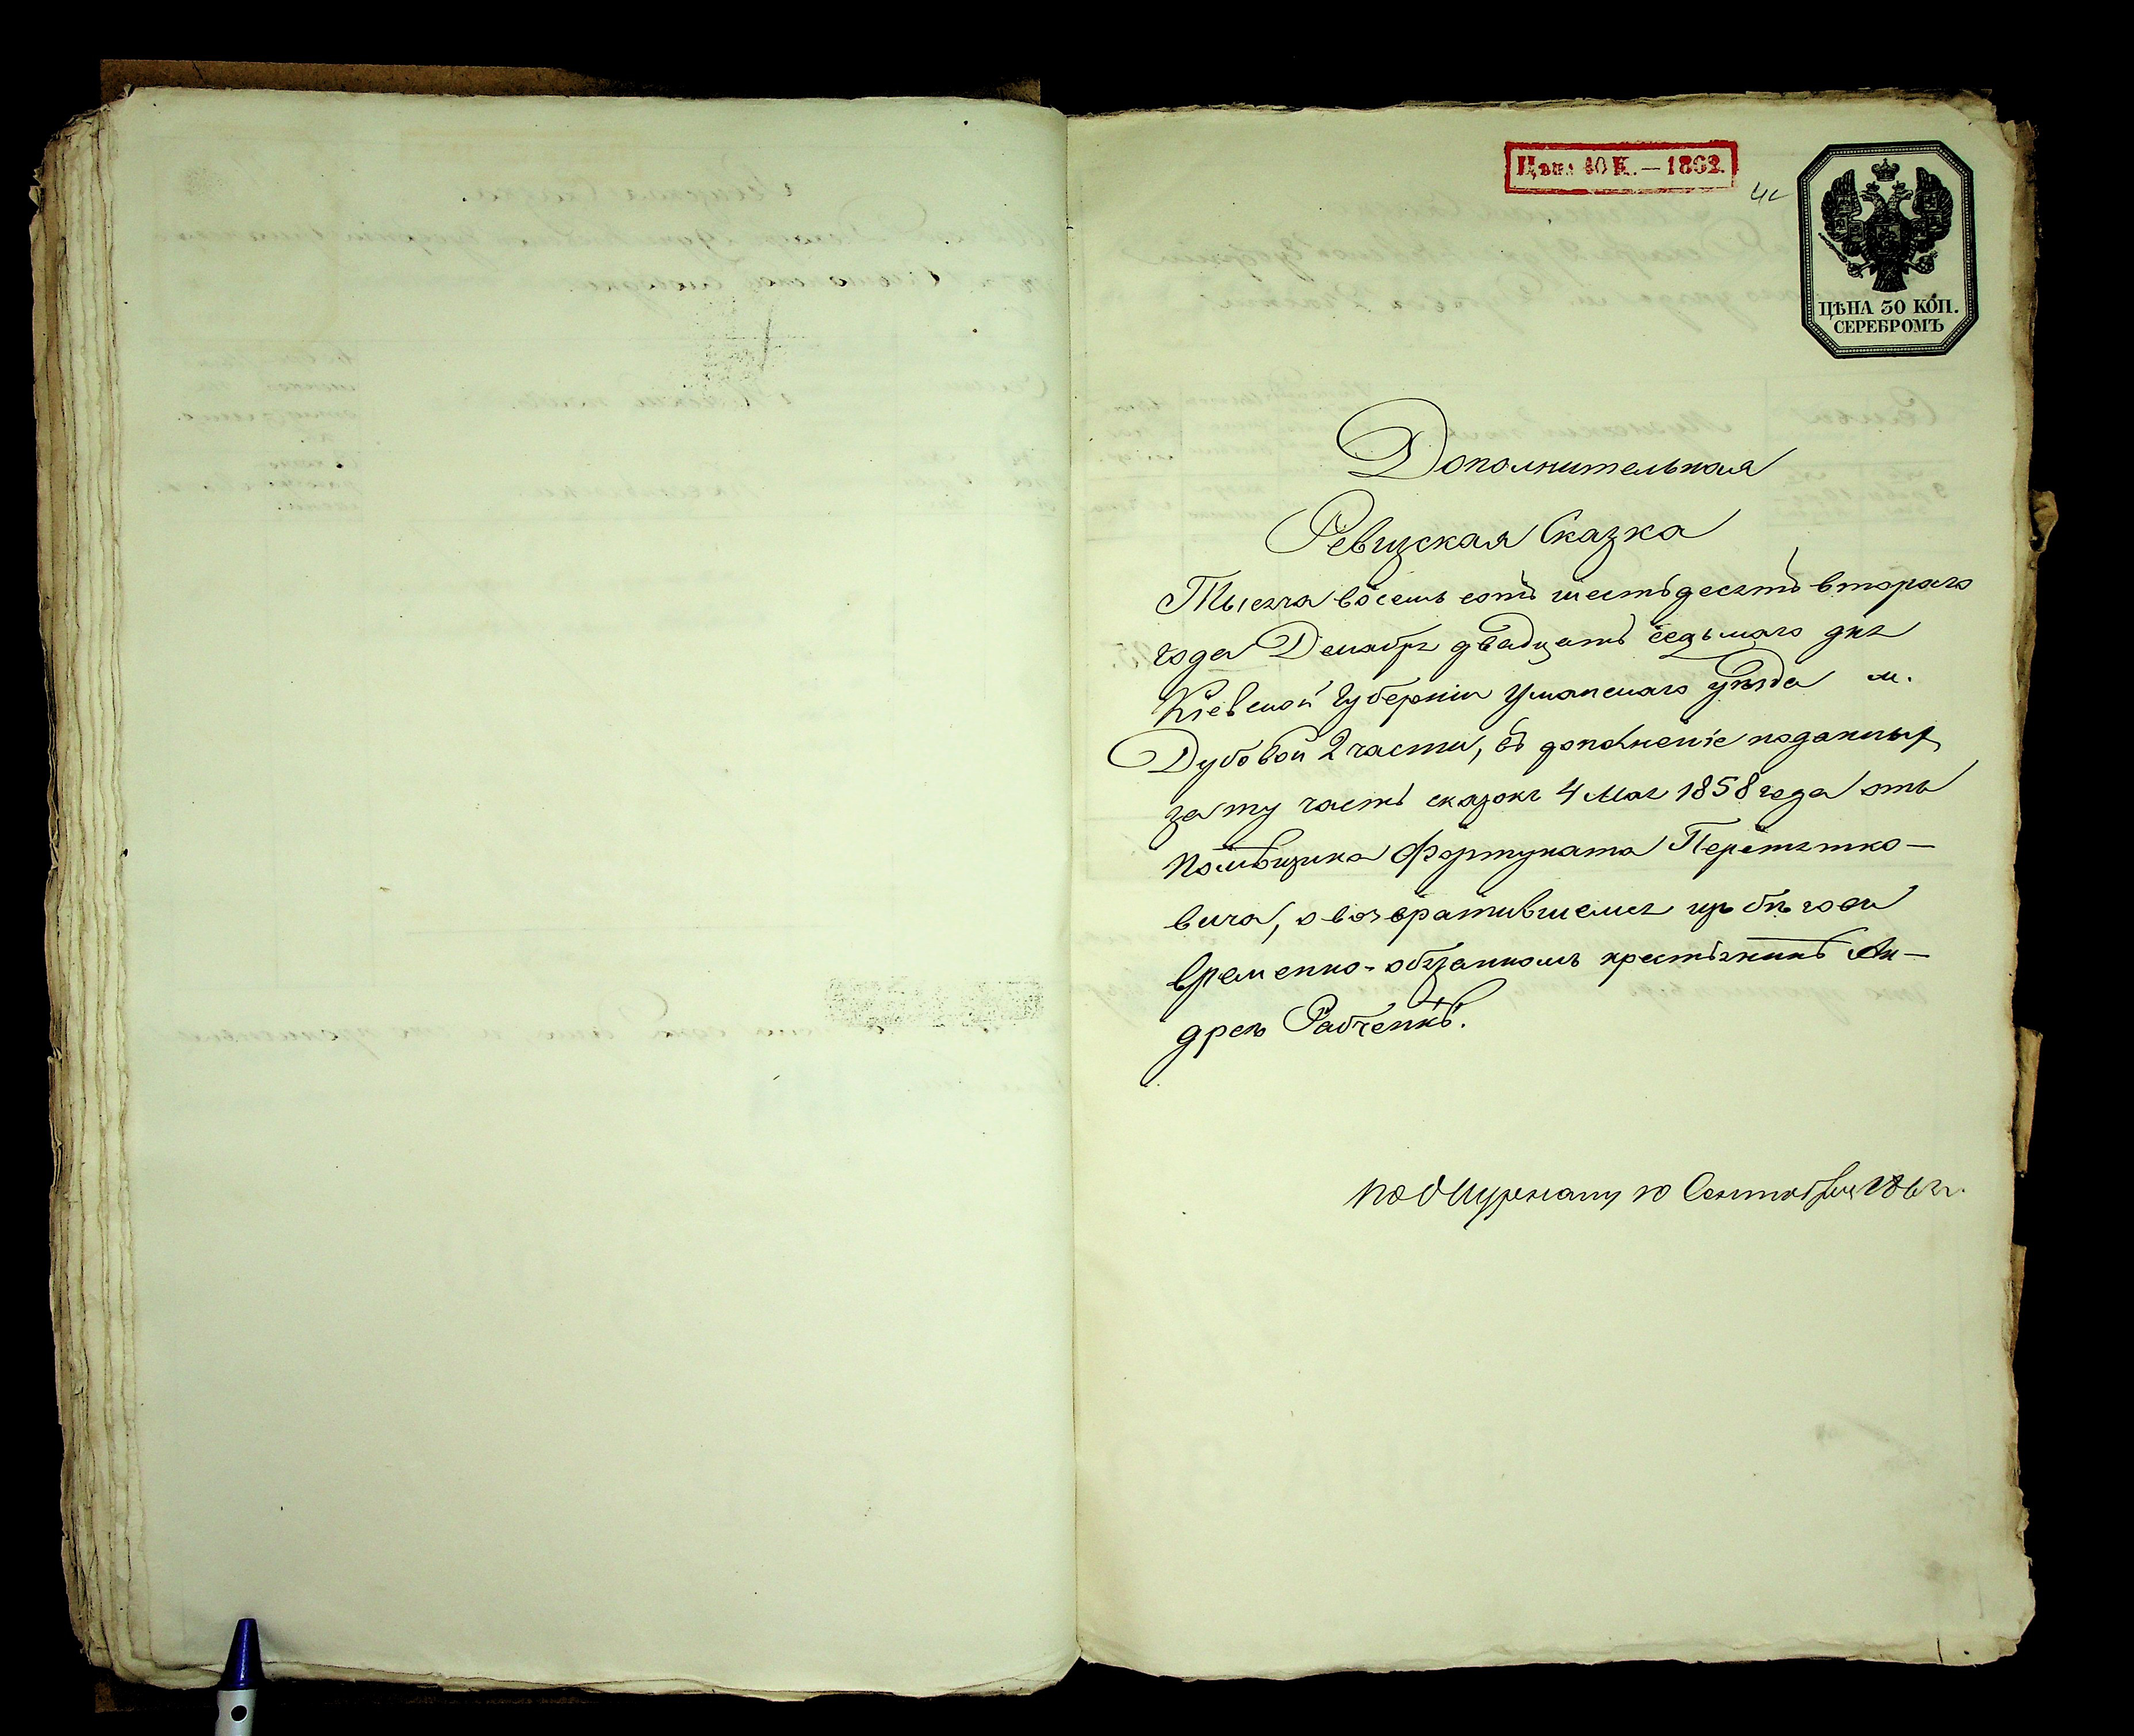 Цѣна 40 К. — 1862.
ЦѢНА 30 КОП.
СЕРЕБРОМЪ
Дополнительная
Ревизская Сказка
Тысяча восемь сотъ шестьдесятъ втораго
года Декабря двадцать седьмаго дня
Кіевской Губерніи Уманскаго уѣзда м.
Дубовой 2 части, въ дополненіе поданныхъ
за ту часть сказокъ 4 Мая 1858 года отъ
помѣщика Фортуната Перетятко-
вича, о возвратившемся изъ бѣговъ
временно-обязанномъ крестьянинѣ Ан-
дреѣ Рабченкѣ.
по Журналу 10 Сентября